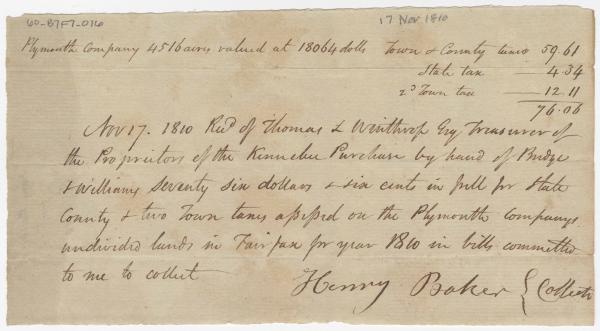 60-B7F7-016
17 Nov 1810
Plymouth company 4516 acres valued at 18064 dolls Town & County taxes 59.61
State tax — 4.34
2d Town tax — 12.11
76.06
Nov 17. 1810 Recd of Thomas L Winthrop Esq Treasurer of
the Proprietors of the Kennebec Purchase by hand of Bridge
& Williams Seventy six dollars & six cents in full for State
County & two Town taxes assessed on the Plymouth companys
undivided lands in Fairfax for year 1810 in bills committed
to me to collect
Henry Baker } Collector